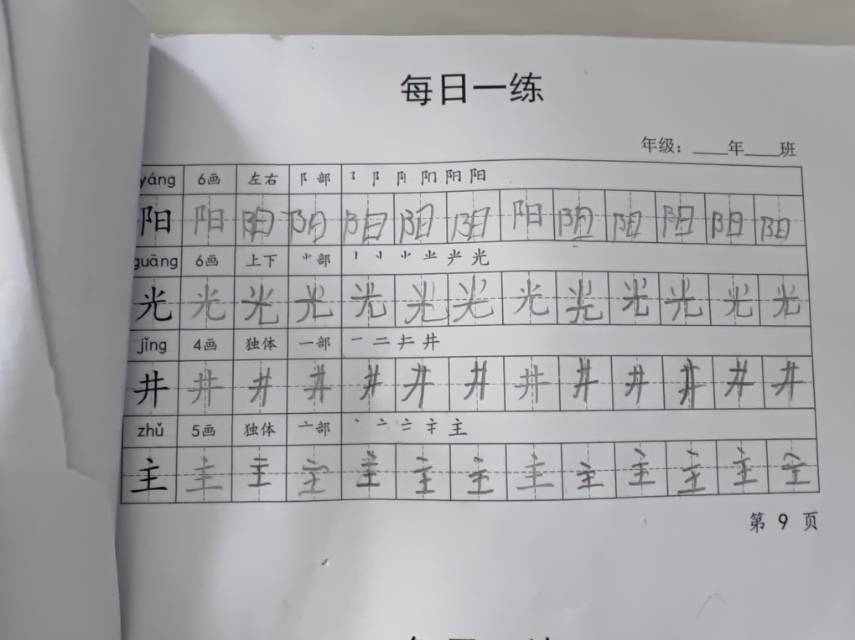 每日一练
年级：____年____班
yáng 6画 左右 阝部 阳 阳
阳 阳 阳 阳 阳 阳 阳 阳 阳 阳 阳 阳 阳
guāng 6画 上下 ⺌部 丨 ⺌ 光
光 光 光 光 光 光 光 光 光 光 光 光 光
jǐng 4画 独体 一部 一 二 井
井 井 井 井 井 井 井 井 井 井 井 井 井
zhǔ 5画 独体 亠部 丶 亠 主
主 主 主 主 主 主 主 主 主 主 主 主 主
第 9 页